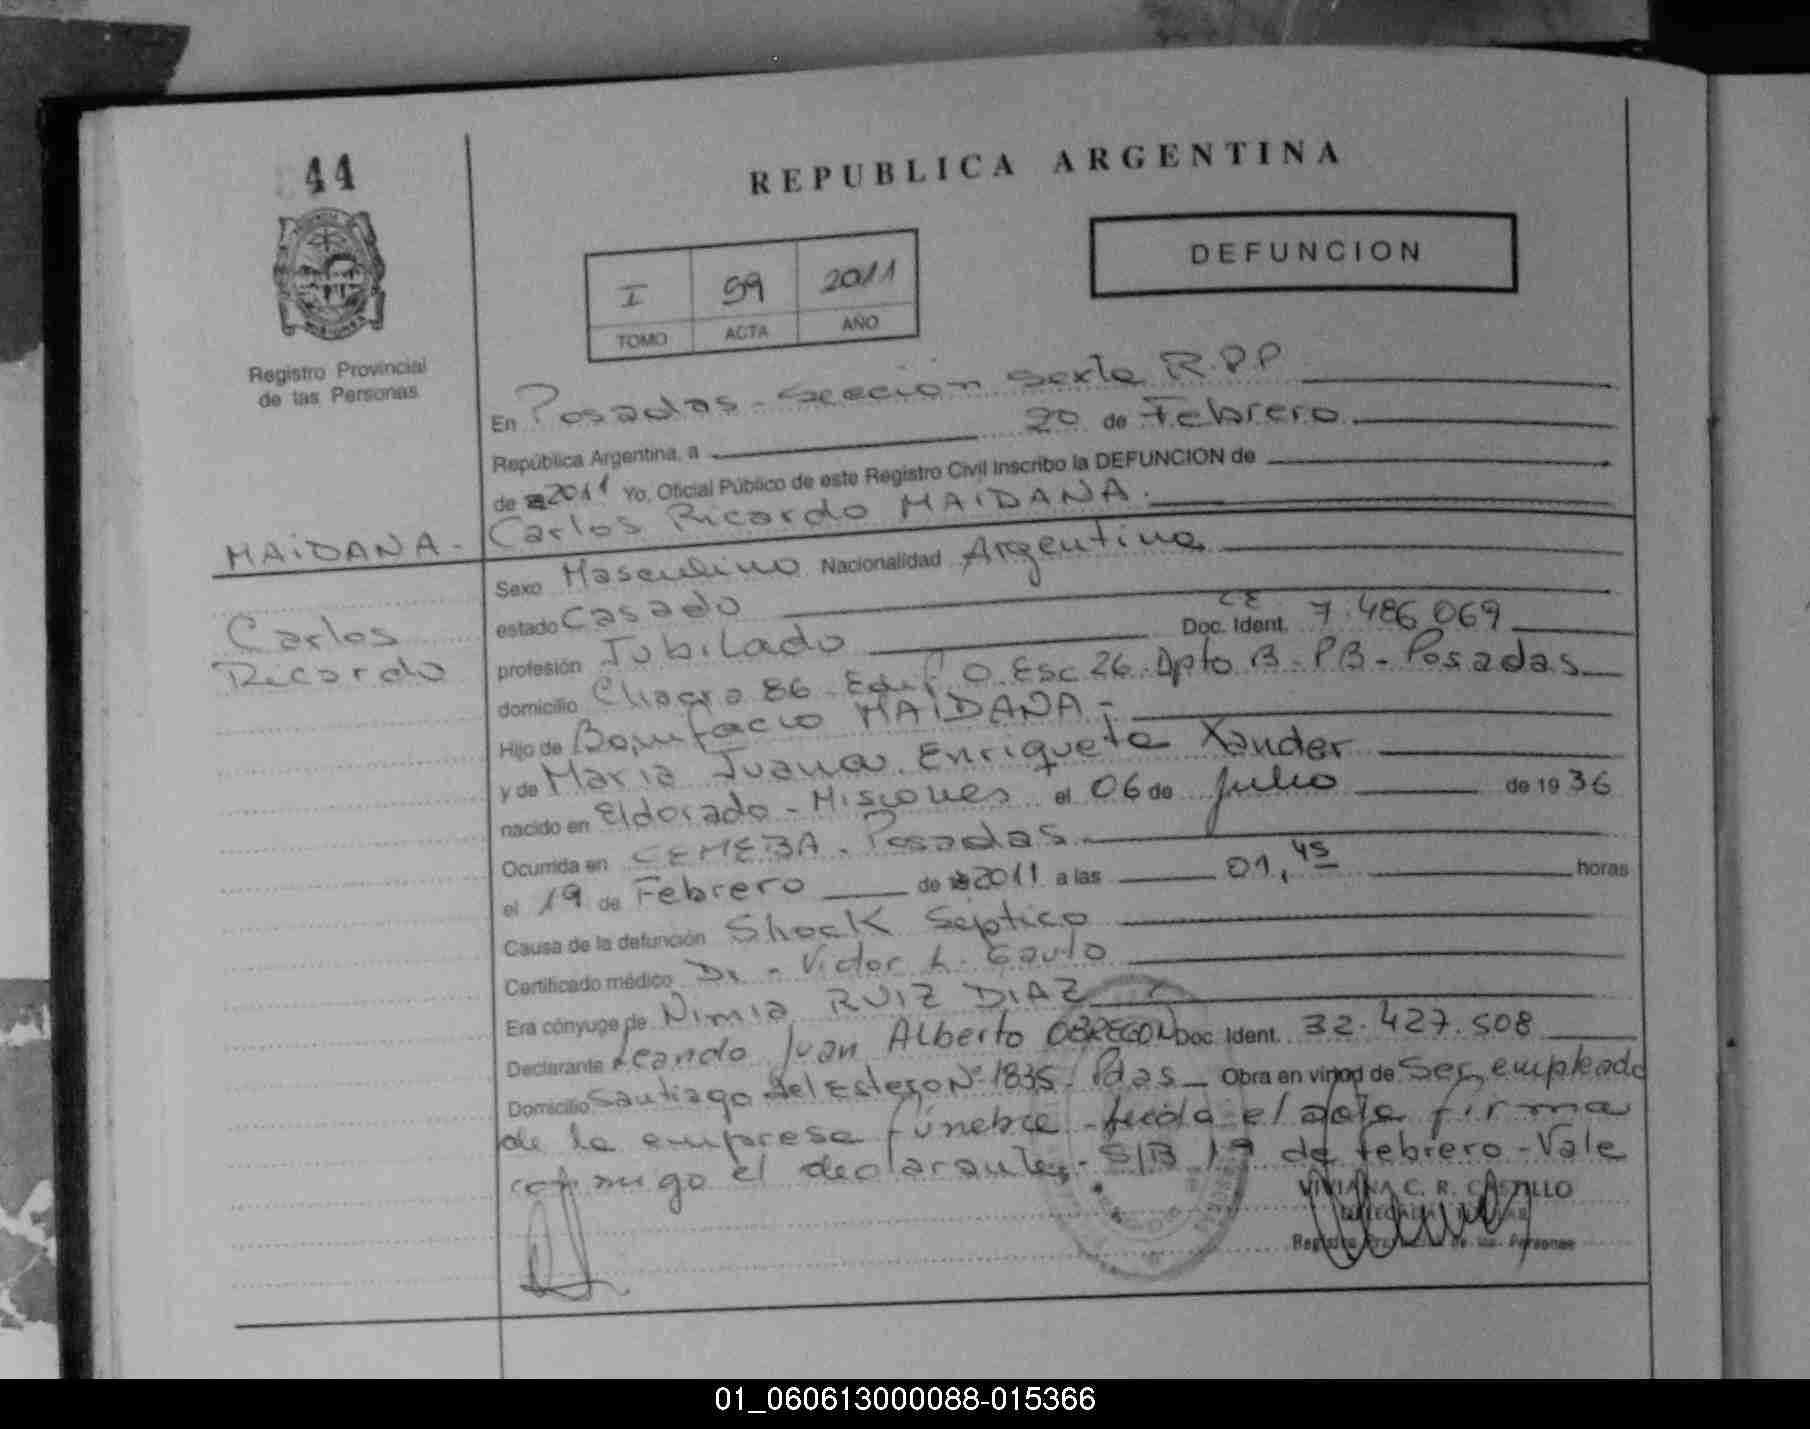 44
REPUBLICA ARGENTINA
DEFUNCION
I 59 2011
TOMO ACTA AÑO
Registro Provincial
de las Personas
En Posadas - Sección Sexta R.P.P
República Argentina, a 20 de Febrero
de 2011 Yo, Oficial Público de este Registro Civil Inscribo la DEFUNCION de
MAIDANA - Carlos Ricardo MAIDANA.
Sexo Masculino Nacionalidad Argentina
Carlos
Ricardo
estado Casado
profesión Jubilado Doc. Ident. CE 7.486.069
domicilio Chacra 86 Edif O. Esc 26 Dpto B - PB - Posadas
Hijo de Bonifacio MAIDANA -
y de Maria Juana Enriqueta Xander
nacido en Eldorado - Misiones el 06 de Julio de 1936
Ocurrida en CEMEBA - Posadas
el 19 de Febrero de 2011 a las 01,45 horas
Causa de la defunción Shock Séptico
Certificado médico Dr - Victor L. Gauto
Era cónyuge de Nimia RUIZ DIAZ
Declarante Leando Juan Alberto OBREGON Doc. Ident. 32.427.508
Domicilio Santiago del Estero Nº 1835 Pdas - Obra en virtud de Ser empleado
de la empresa fúnebre - el acta firma
conmigo el declarante - S/B 19 de febrero - Vale
VIVIANA C. R. CASTILLO
Registro de las Personas
01_060613000088-015366